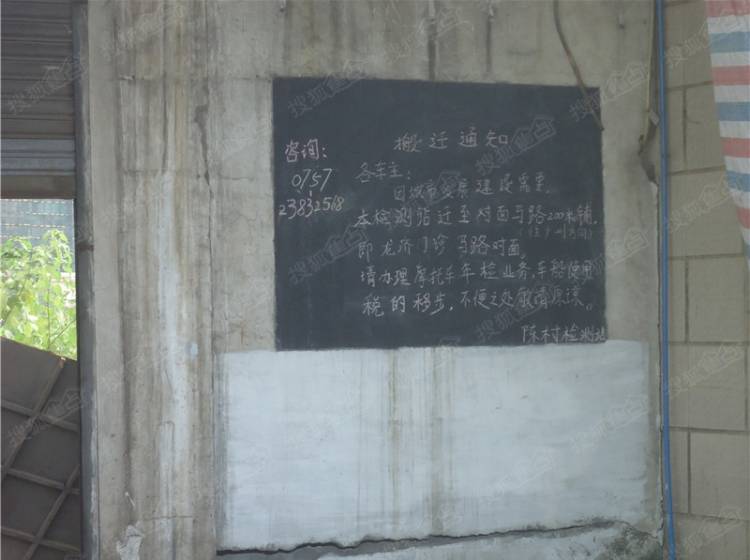 搬迁通知
咨询:
0757
23832518
各车主:
因城市发展建设需要,
本检测站迁至对面马路200米铺,
(往广州方向)
即龙沂门诊马路对面。
请办理摩托车年检业务,车船使用
税的移步,不便之处敬请原谅。
陈村检测站